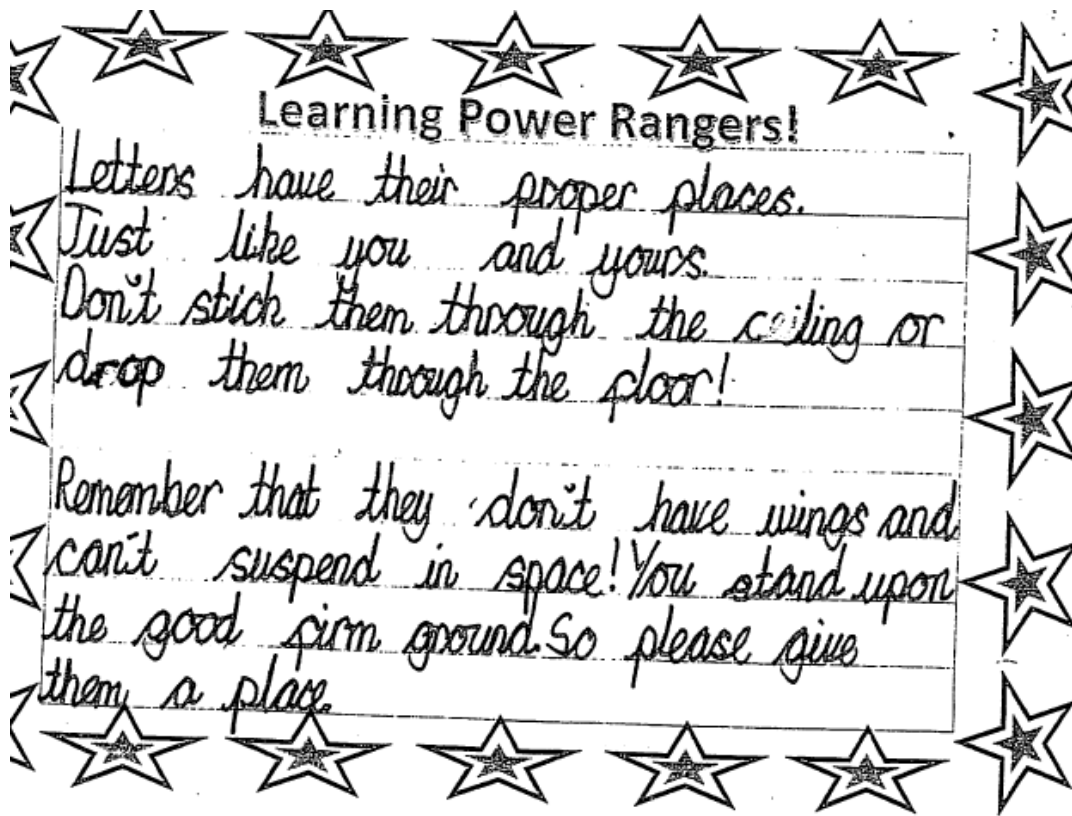 Learning Power Rangers!
Letters have their proper places.
Just like you and yours.
Don't stick them through the ceiling or
drop them through the floor!
Remember that they don't have wings and
can't suspend in space! You stand upon
the good firm ground. So please give
them a place.